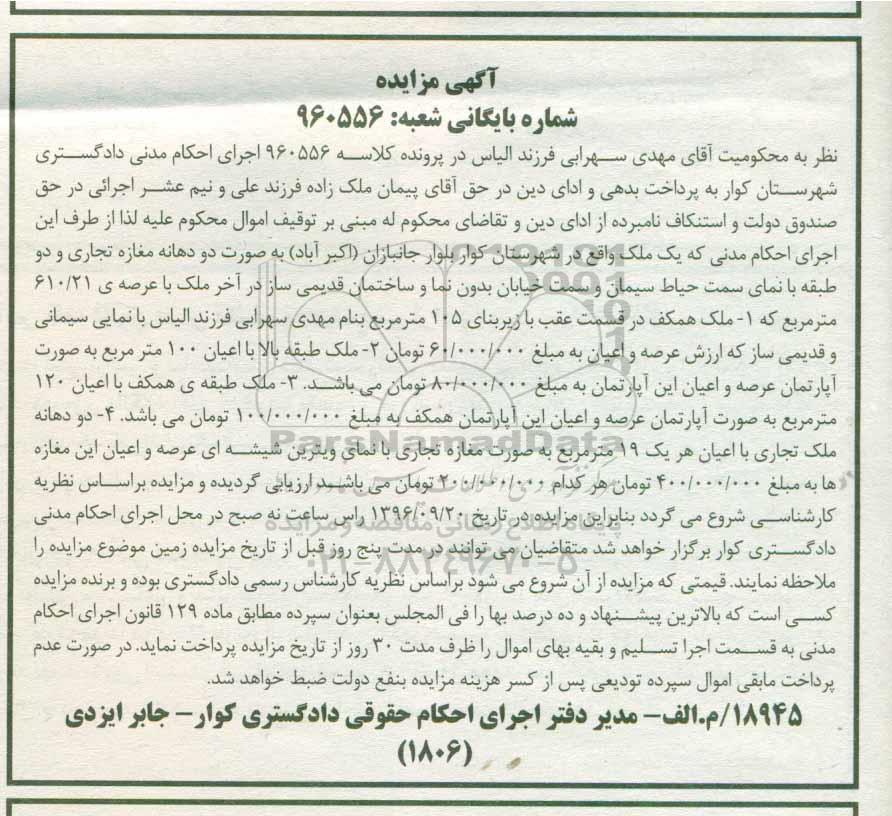 آگهی مزایده
شماره بایگانی شعبه: ۹۶۰۵۵۶
نظر به محکومیت آقای مهدی سهرابی فرزند الیاس در پرونده کلاسه ۹۶۰۵۵۶ اجرای احکام مدنی دادگستری
شهرستان کوار به پرداخت بدهی و ادای دین در حق آقای پیمان ملک زاده فرزند علی و نیم عشر اجرائی در حق
صندوق دولت و استنکاف نامبرده از ادای دین و تقاضای محکوم له مبنی بر توقیف اموال محکوم علیه لذا از طرف این
اجرای احکام مدنی که یک ملک واقع در شهرستان کوار بلوار جانبازان (اکبر آباد) به صورت دو دهانه مغازه تجاری و دو
طبقه با نمای سمت حیاط سیمان و سمت خیابان بدون نما و ساختمان قدیمی ساز در آخر ملک با عرصه ی ۶۱۰/۲۱
مترمربع که ۱- ملک همکف در قسمت عقب با زیربنای ۱۰۵ مترمربع بنام مهدی سهرابی فرزند الیاس با نمایی سیمانی
و قدیمی ساز که ارزش عرصه و اعیان به مبلغ ۶۰/۰۰۰/۰۰۰ تومان ۲- ملک طبقه بالا با اعیان ۱۰۰ متر مربع به صورت
آپارتمان عرصه و اعیان این آپارتمان به مبلغ ۸۰/۰۰۰/۰۰۰ تومان می باشد. ۳- ملک طبقه ی همکف با اعیان ۱۲۰
مترمربع به صورت آپارتمان عرصه و اعیان این آپارتمان همکف به مبلغ ۱۰۰/۰۰۰/۰۰۰ تومان می باشد. ۴- دو دهانه
ملک تجاری با اعیان هر یک ۱۹ مترمربع به صورت مغازه تجاری با نمای ویترین شیشه ای عرصه و اعیان این مغازه
ها به مبلغ ۴۰۰/۰۰۰/۰۰۰ تومان هر کدام ۲۰۰/۰۰۰/۰۰۰ تومان می باشد ارزیابی گردیده و مزایده براساس نظریه
کارشناسی شروع می گردد بنابراین مزایده در تاریخ ۱۳۹۶/۰۹/۲۰ راس ساعت نه صبح در محل اجرای احکام مدنی
دادگستری کوار برگزار خواهد شد متقاضیان می توانند در مدت پنج روز قبل از تاریخ مزایده زمین موضوع مزایده را
ملاحظه نمایند. قیمتی که مزایده از آن شروع می شود براساس نظریه کارشناس رسمی دادگستری بوده و برنده مزایده
کسی است که بالاترین پیشنهاد و ده درصد بها را فی المجلس بعنوان سپرده مطابق ماده ۱۲۹ قانون اجرای احکام
مدنی به قسمت اجرا تسلیم و بقیه بهای اموال را ظرف مدت ۳۰ روز از تاریخ مزایده پرداخت نماید. در صورت عدم
پرداخت مابقی اموال سپرده تودیعی پس از کسر هزینه مزایده بنفع دولت ضبط خواهد شد.
۱۸۹۴۵/م.الف- مدیر دفتر اجرای احکام حقوقی دادگستری کوار- جابر ایزدی
(۱۸۰۶)
ParsNamadData
۰۲۱-۸۸۳۴۹۶۷۰-۵